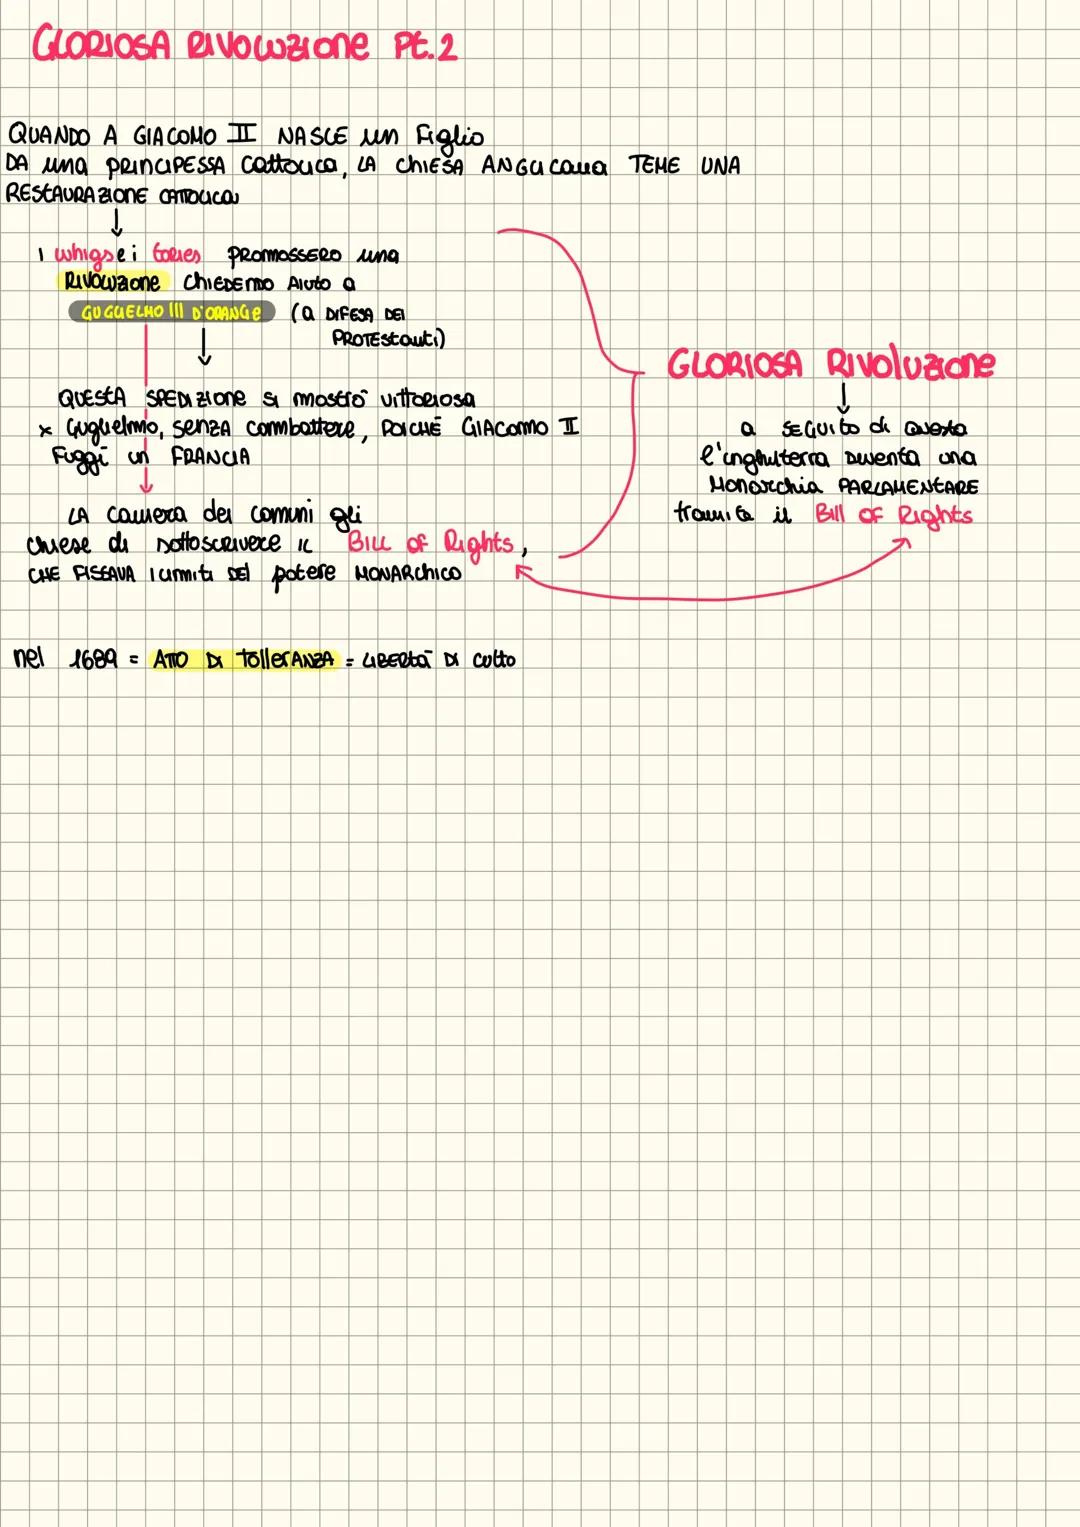 GLORIOSA RIVOLUZIONE Pt.2
QUANDO A GIACOMO II NASCE un Figlio
DA una PRINCIPESSA Cattolica, LA CHIESA ANGLICana TEME UNA
RESTAURAZIONE CATTOLICA
↓
I whigs e i tories PROMOSSERO una
RIVOLUZIONE CHIEDENDO AIUTO a
GUGLIELMO III D'ORANGE (a DIFESA DEI
PROTEStanti)
↓
QUESTA SPEDIZIONE si mostrò vittoriosa
x Guglielmo, SENZA combattere, POICHÈ GIACOMO II
Fuggì in FRANCIA
LA Camera dei comuni gli
chiese di sottoscrivere IL Bill of Rights,
CHE FISSAVA I limiti DEL potere MONARCHICO
GLORIOSA RIVOLUZIONE
↓
a SEGUITO di Questa
l'inghilterra Diventa una
Monarchia PARLAMENTARE
tramite il Bill OF Rights
nel 1689 = ATTO DI TolleRANZA = LIBERTÀ DI culto